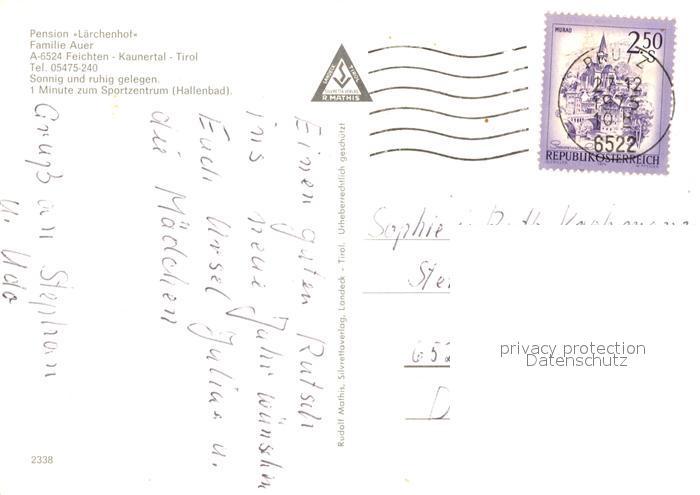 Pension »Lärchenhof«
Familie Auer
A-6524 Feichten - Kaunertal - Tirol
Tel. 05475-240
Sonnig und ruhig gelegen.
1 Minute zum Sportzentrum (Hallenbad).
R MATHIS
MURAU
2.50 S
PRUTZ
27.12
1975
6522
REPUBLIK ÖSTERREICH
Einen guten Rutsch
ins neue Jahr wünschen
Euch Ursel Julius u.
die Mädchen
Gruß an Stephan
u. Udo
Rudolf Mathis, Silvrettaverlag, Landeck - Tirol. Urheberrechtlich geschützt
Sophie
Ste
652
D
privacy protection
Datenschutz
2338